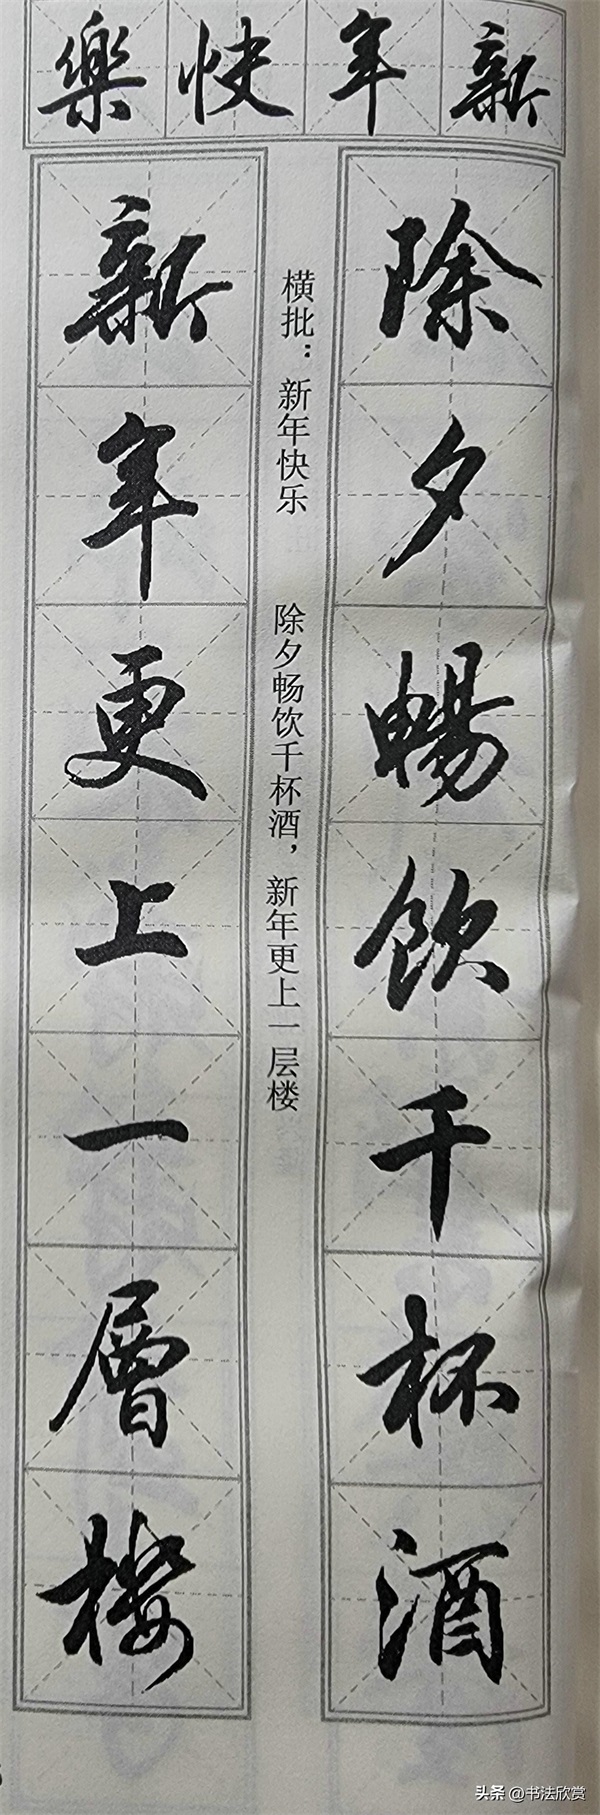 新年快樂
除夕暢飲千杯酒
新年更上一層樓
横批：新年快乐
除夕畅饮千杯酒，新年更上一层楼
头条 @书法欣赏